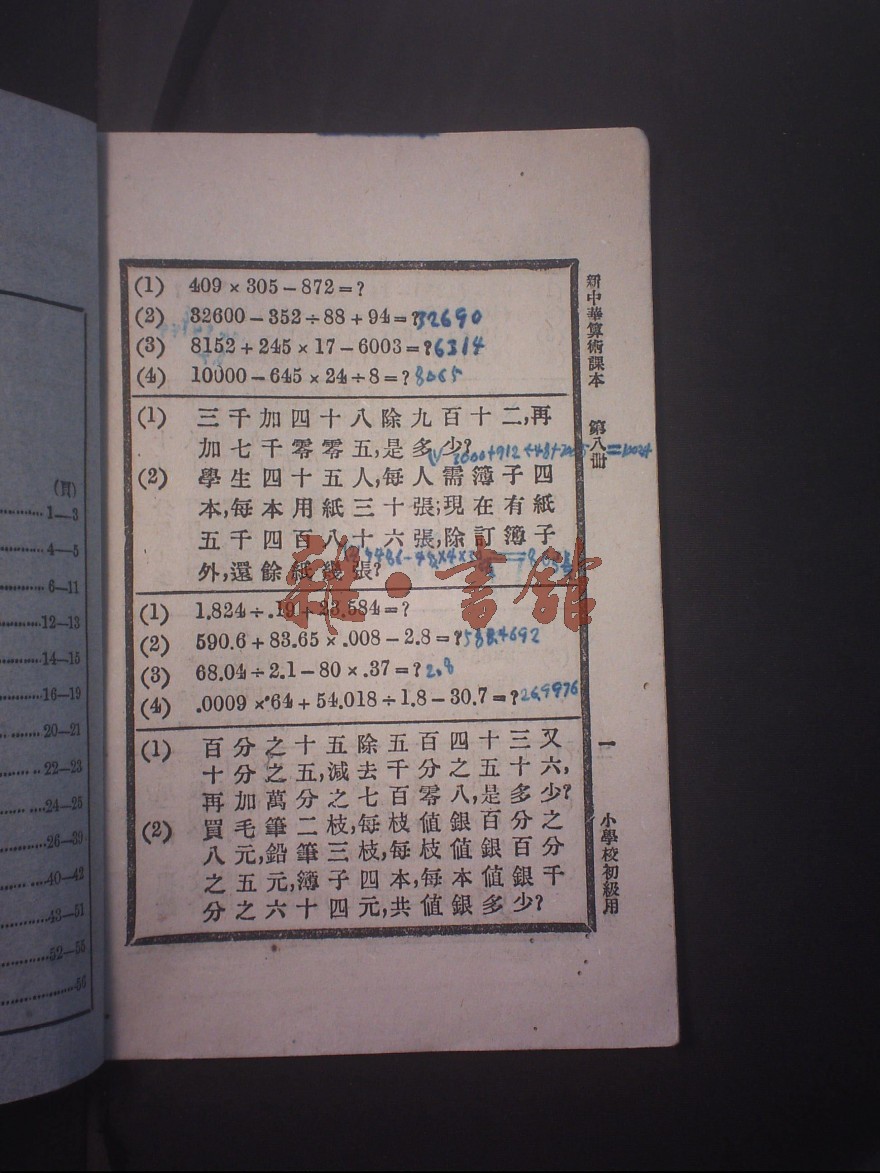 (頁)
1—3
4—5
6—11
12—13
14—15
16—19
20—21
22—23
24—25
26—39
40—42
43—51
52—55
56
新中華算術課本 第八冊
一
小學校初級用
(1) 409 × 305 − 872 = ?
(2) 32600 − 352 ÷ 88 + 94 = ? 32690
(3) 8152 + 245 × 17 − 6003 = ? 6314
(4) 10000 − 645 × 24 ÷ 8 = ? 8065
(1) 三千加四十八除九百十二,再
加七千零零五,是多少?
(2) 學生四十五人,每人需簿子四
本,每本用紙三十張;現在有紙
五千四百八十六張,除訂簿子
外,還餘紙幾張?
(1) 1.824 ÷ .19 + 23.584 = ?
(2) 590.6 + 83.65 × .008 − 2.8 = ? 588.4692
(3) 68.04 ÷ 2.1 − 80 × .37 = ? 2.8
(4) .0009 × .64 + 54.018 ÷ 1.8 − 30.7 = ?
(1) 百分之十五除五百四十三又
十分之五,減去千分之五十六,
再加萬分之七百零八,是多少?
(2) 買毛筆二枝,每枝值銀百分之
八元,鉛筆三枝,每枝值銀百分
之五元,簿子四本,每本值銀千
分之六十四元,共值銀多少?
雜·書館